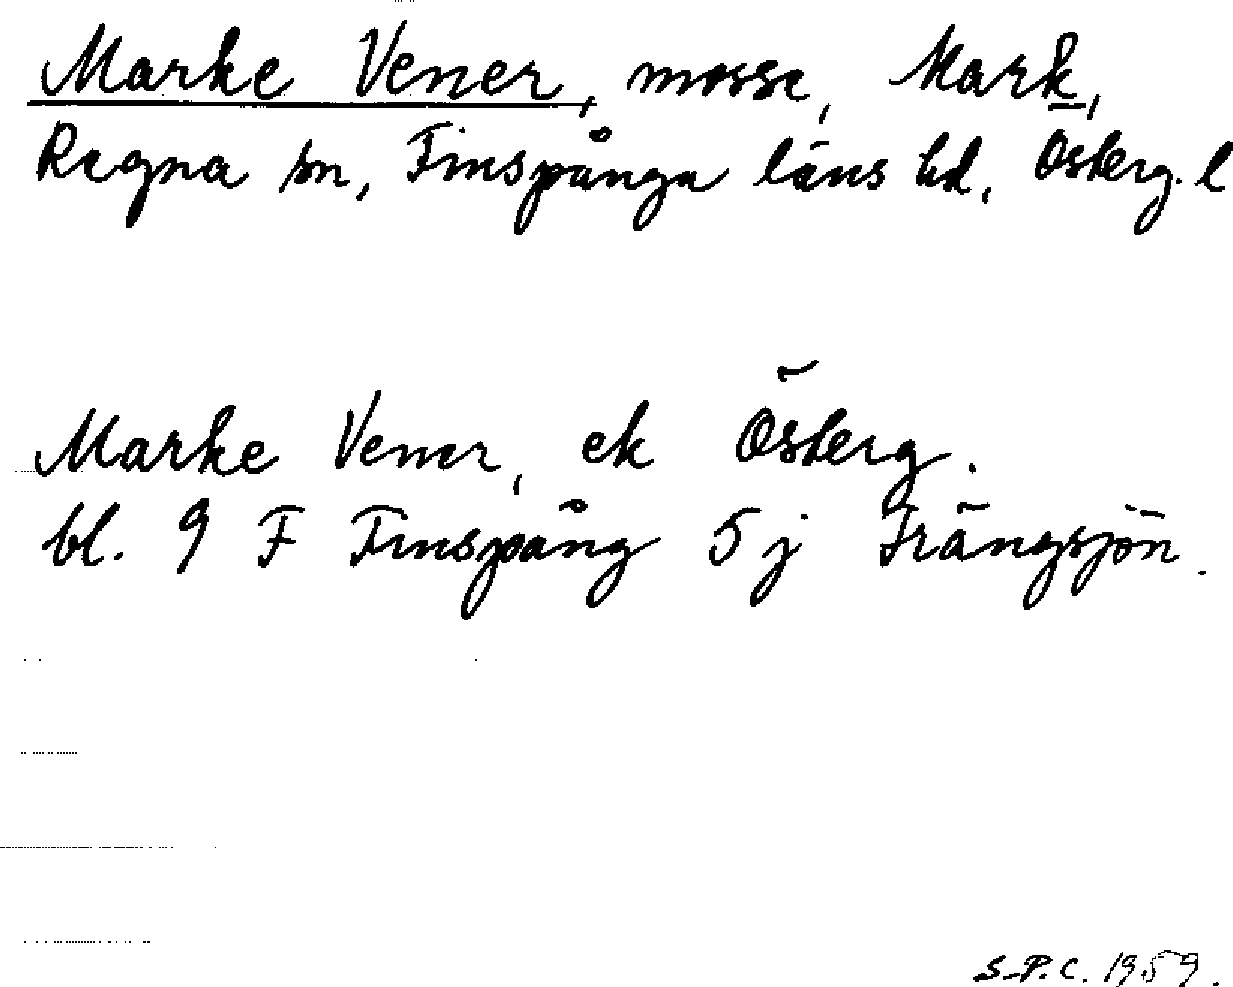 Marke Vener, mosse, Mark,
Regna sn, Finspånga läns hd, Österg. l
Marke Vener, ek Österg.
bl. 9 F Finspång 5 j Trängsjön.
S.P.C. 1959.